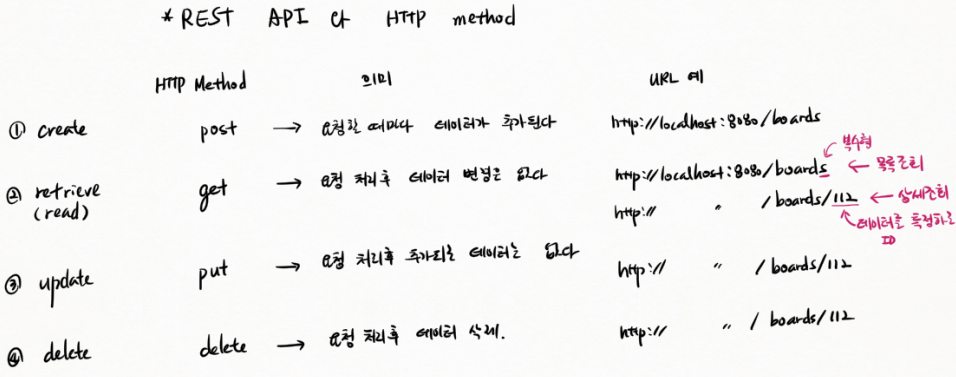 * REST API 와 HTTP method
HTTP Method 의미 URL 예
① create post → 요청할 때마다 데이터가 추가된다 http://localhost:8080/boards
복수형
② retrieve (read) get → 요청 처리후 데이터 변경은 없다 http://localhost:8080/boards ← 목록조회
http:// " /boards/112 ← 상세조회
데이터를 특정하는 ID
③ update put → 요청 처리후 추가되는 데이터는 없다 http:// " /boards/112
④ delete delete → 요청 처리후 데이터 삭제. http:// " /boards/112